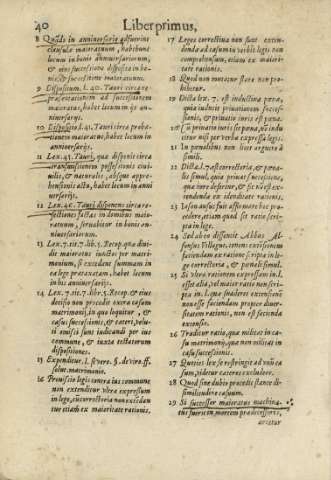 40 Liber primus,
8 Quòd in anniversario adfuerint
clausulæ maioratuum, habebunt
locum in bonis anniversariorum,
& eius successione disposita in bo-
nis & successione maioratuum.
9 Dispositum l. 40. Tauri circa re-
præsentationem ad successionem
maioratus, habet locum in iis anni-
versariis.
10 Dispositio l. 41. Tauri circa proba-
tionem maioratus, habet locum in
anniversariis.
11 Lex. 45. Tauri, quæ disponit circa
transmissionem possessionis civi-
lis, & naturalis, absque appre-
hensionis actu, habet locum in anni
versariis.
12 Lex. 46. Tauri disponens circa re-
fectiones factas in domibus maio-
ratuum, servabitur in anniversa-
riis.
13 Lex. 7. tit. 7. lib. 5. Recop. quæ divi-
dit maioratus iunctos per matri-
monium, si excedent summam in
ea lege præfixatam, habet locum
in his anniversariis.
14 Lex. 7. tit. 7. lib. 5. Recop. & eius
decisio non procedit extra casum
matrimonij, in quo loquitur, &
casus successionis, & cæteri, pelu-
ti omissi sunt iudicandi per ius
commune, & iuxta testatorum
dispositiones.
15 Expenditur, l. si vero. §. de viro. ff.
solut. matrimonio.
16 Provisio legis contra ius commune
non extenditur ultra expressum
in lege, & correctoria non exten-
tur etiam ex maioritate rationis.
17 Leges correctoria non sunt exten-
dendæ ad casum in verbis legis non
comprehensum, etiam ex maiori-
tate rationis.
18 Quod non mutatur stare non pro-
hibetur.
19 Dicta lex 7. est inductiva pœnæ,
quia inducit privationem succes-
sionis, & privatio iuris est pœna.
20 Privatio iuris sit pœna, nõ indu-
citur nisi per verba expressa legis.
21 In pœnalibus non licet arguere à
simili.
22 Dicta l. 7. est correctoria, & pœna-
lis simul, quia privat successione,
quæ iure defertur, & sic nõ est ex-
tendenda ex identitate rationis.
23 Iason ausus fuit affirmare hoc pro-
cedere, etiam quod sit ratio scri-
pta in lege.
24 Sed ab eo dissentit Abbas Al-
fonsus Villagut, tenens extensionem
faciendam ex ratione scripta in le-
ge correctoria, & pœnali simul.
25 Si ultra rationem expressam in l.
esset alia, vel maior ratio non scri-
pta in l. quæ suaderet extensionem
non esse faciendam propter diver-
sitatem rationis, non est facienda
extensio.
26 Traditur ratio, quæ militat in ca-
su matrimonij, quæ non militat in
casu successionis.
27 Quoties lex se restringit ad unum ca-
sum, videtur cæteros excludere.
28 Quod sine dubio procedit stante di-
similitudine casuum.
29 Si successor maioratus machina-
tus fuerit in mortem prædecessoris,
arcetur